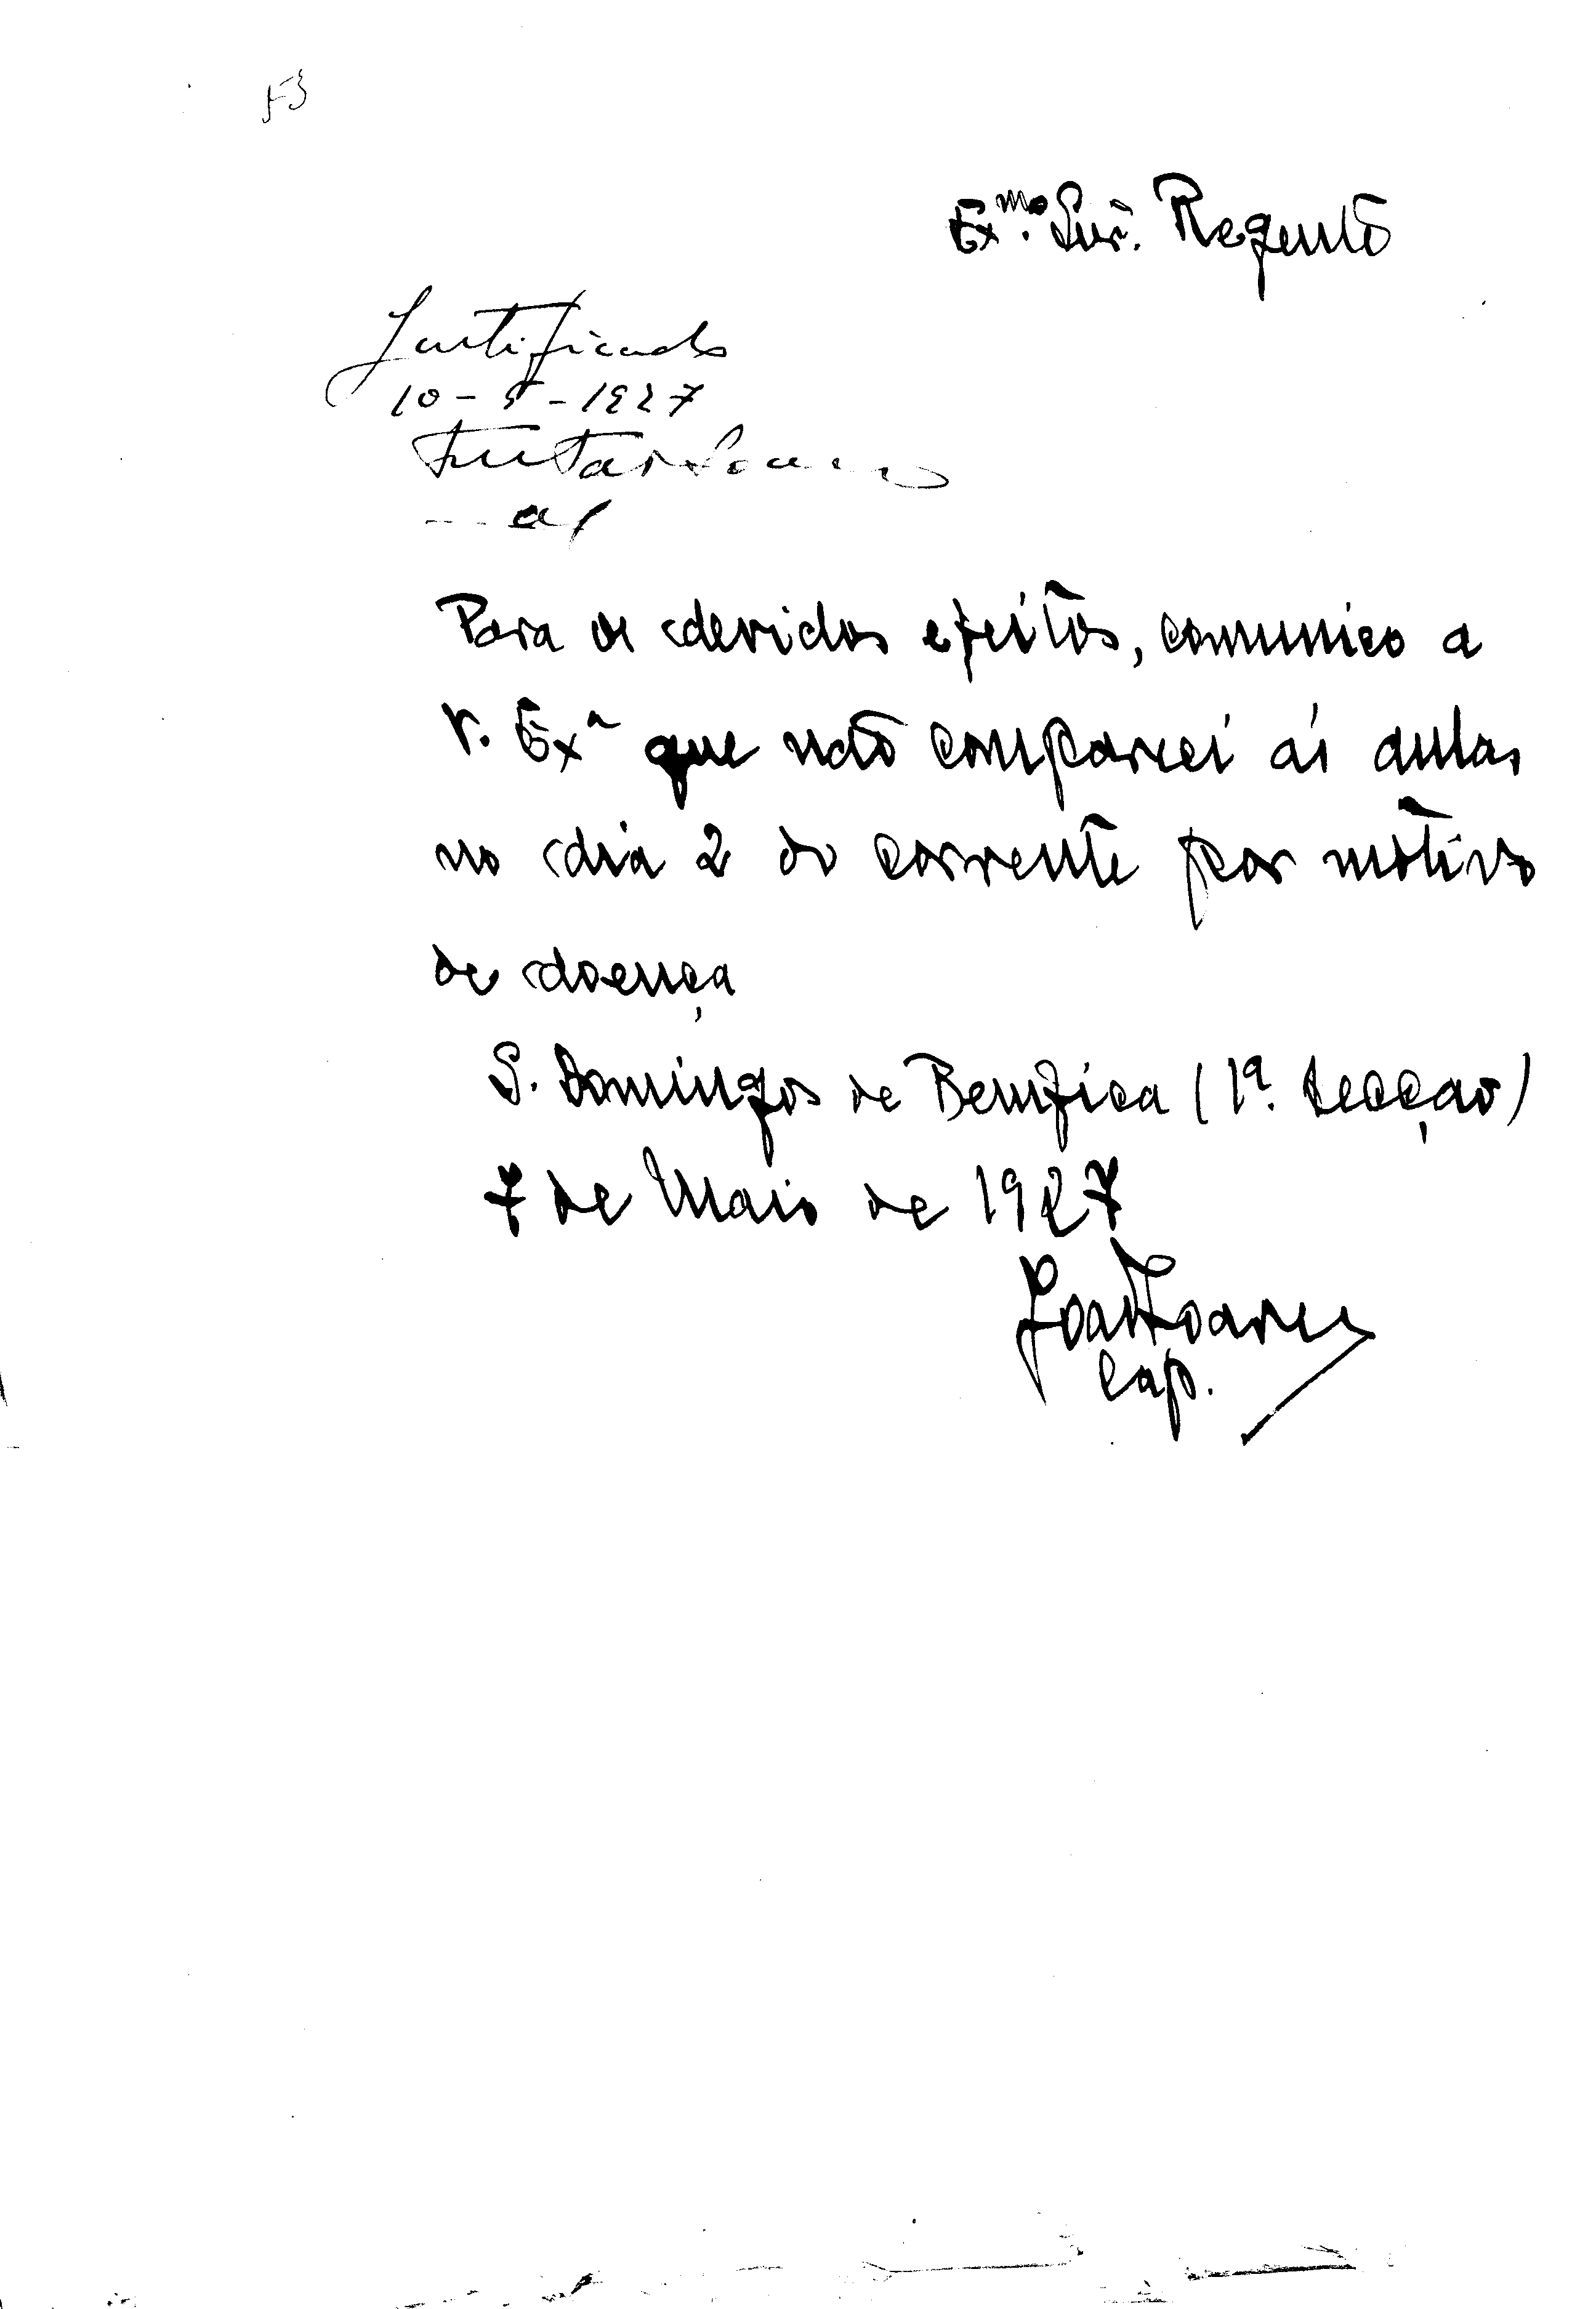 53
Exmo. Snr. Regente
Justificado
10-5-1927
Para os devidos efeitos, comunico a
V. Exa que não comparei ás aulas
no dia 2 do corrente por motivo
de doença
S. Domingos de Bemfica (1a. Secção)
7 de Maio de 1927
Soares
Cap.